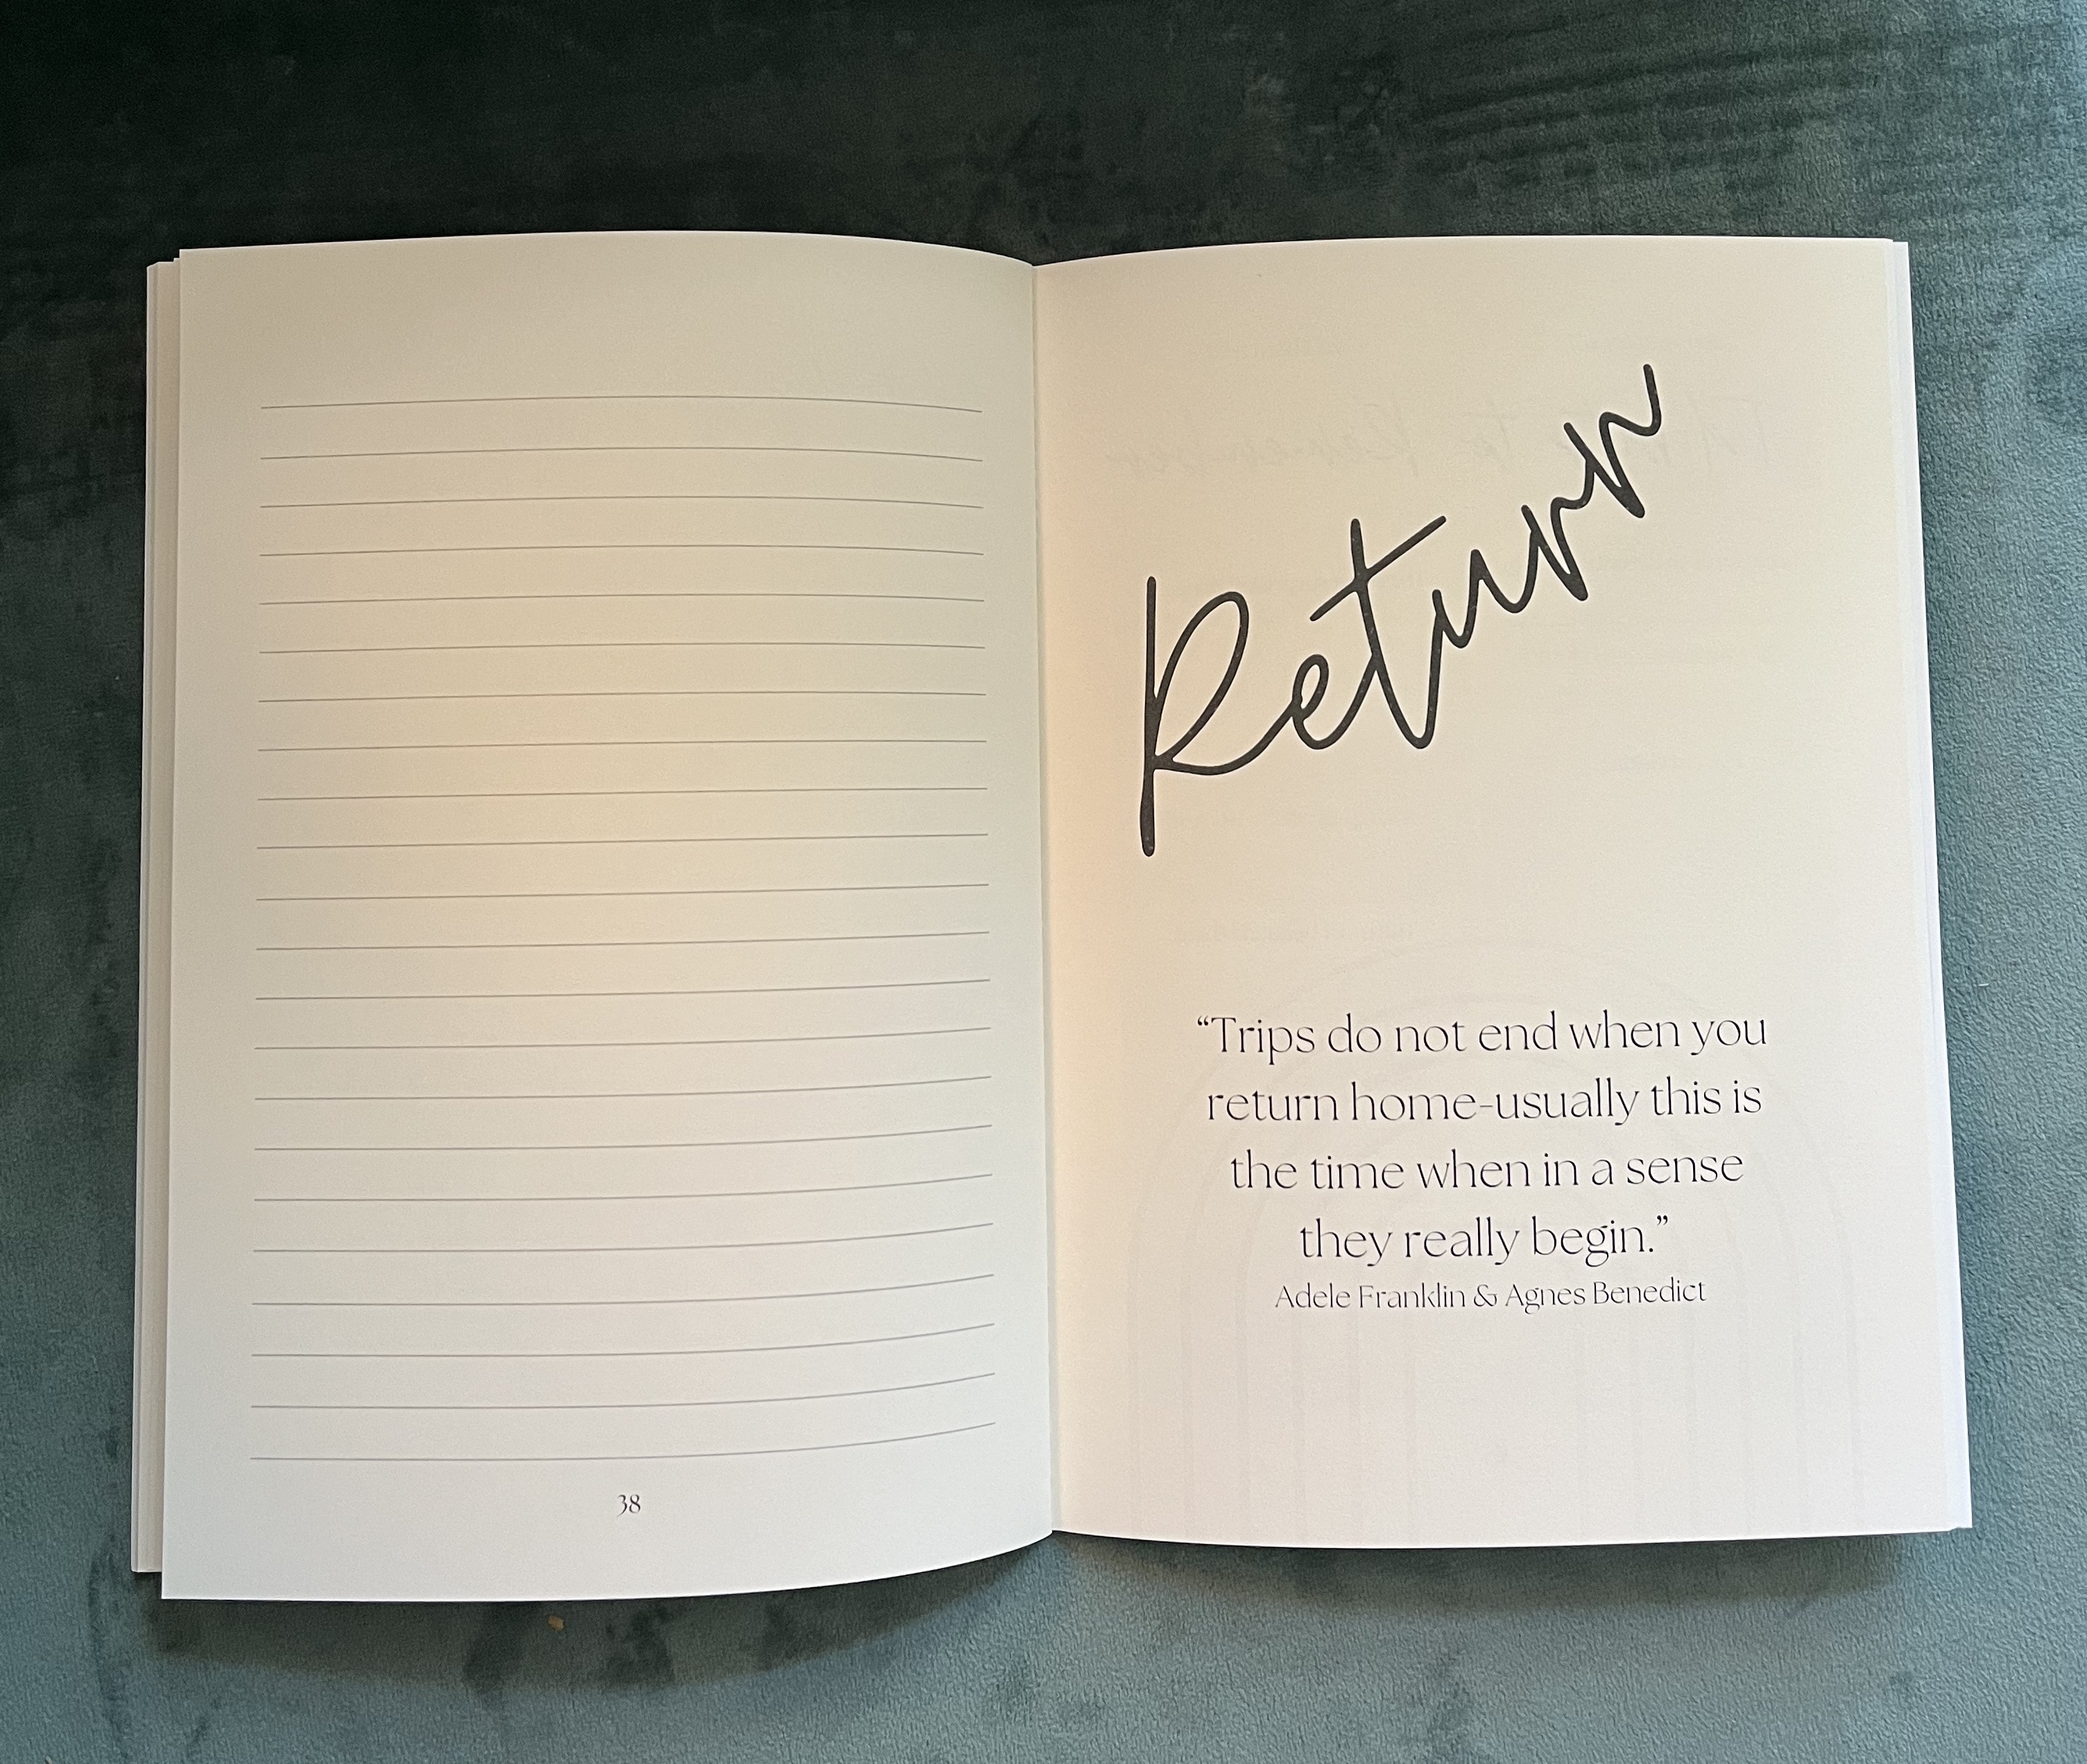 38
Return
“Trips do not end when you
return home-usually this is
the time when in a sense
they really begin.”
Adele Franklin & Agnes Benedict